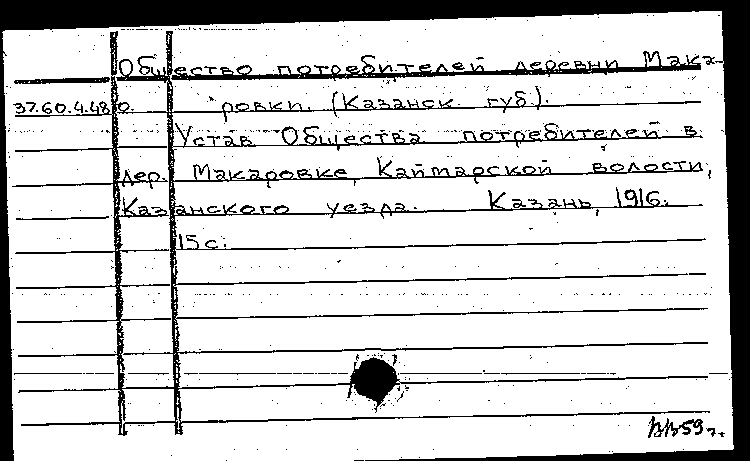 Общество потребителей деревни Мака-
37.60.4.480. ровки. (Казанск. губ.).
Устав Общества потребителей в
дер. Макаровке, Каймарской волости,
Казанского уезда. Казань, 1916.
15 с.